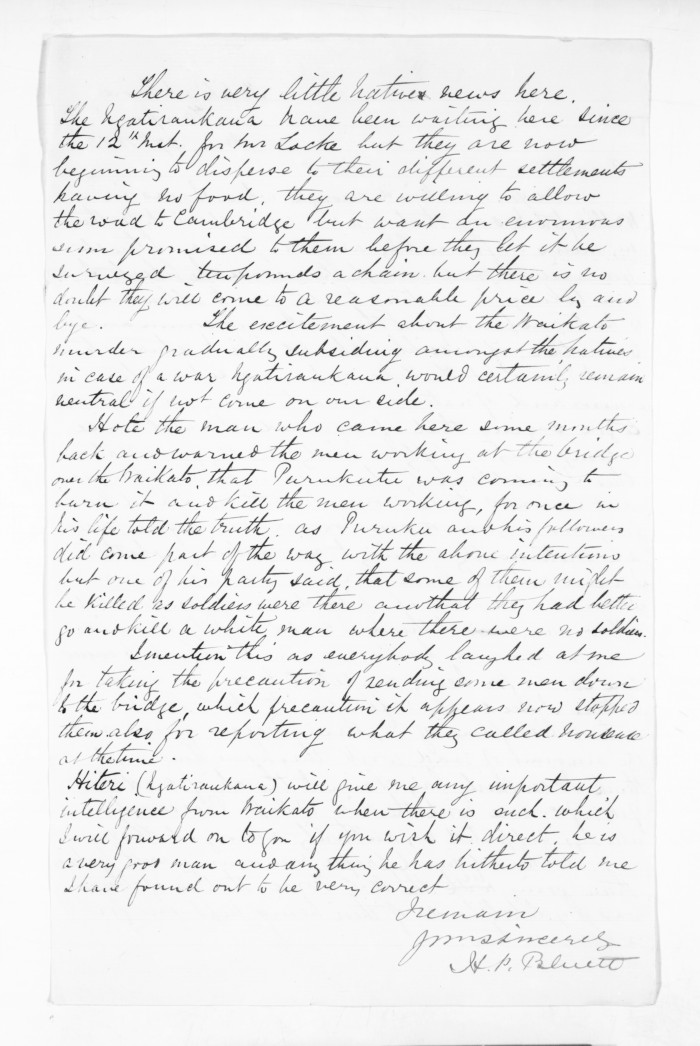 There is very little Native news here.
The Ngatiraukana have been waiting here since
the 12th Inst. for Mr Locke but they are now
beginning to disperse to their different settlements
having no food, they are willing to allow
the road to Cambridge but want an enormous
sum promised to them before they let it be
surveyed ten pounds a chain but there is no
doubt they will come to a reasonable price by and
bye. The excitement about the Waikato
murder gradually subsiding amongst the Natives
in case of a war Ngatiraukana would certainly remain
neutral if not come on our side.
Hote the man who came here some months
back and warned the men working at the bridge
over the Waikato, that Purukutu was coming to
burn it and kill the men working, for once in
his life told the truth as Puruku and his followers
did come part of the way with the above intentions
but one of his party said, that some of them might
be killed as soldiers were there and that they had better
go and kill a white man where there were no soldiers.
I mention this as everybody laughed at me
for taking the precaution of sending some men down
to the bridge, which precaution it appears now stopped
them also for reporting what they called nonsense
at the time.
Hiteri (Ngatiraukana) will give me any important
intelligence from Waikato when there is such which
I will forward on to you if you wish it direct, he is
a very good man and anything he has hitherto told me
I have found out to be very correct
I remain
yours sincerely
H. P. Bluett